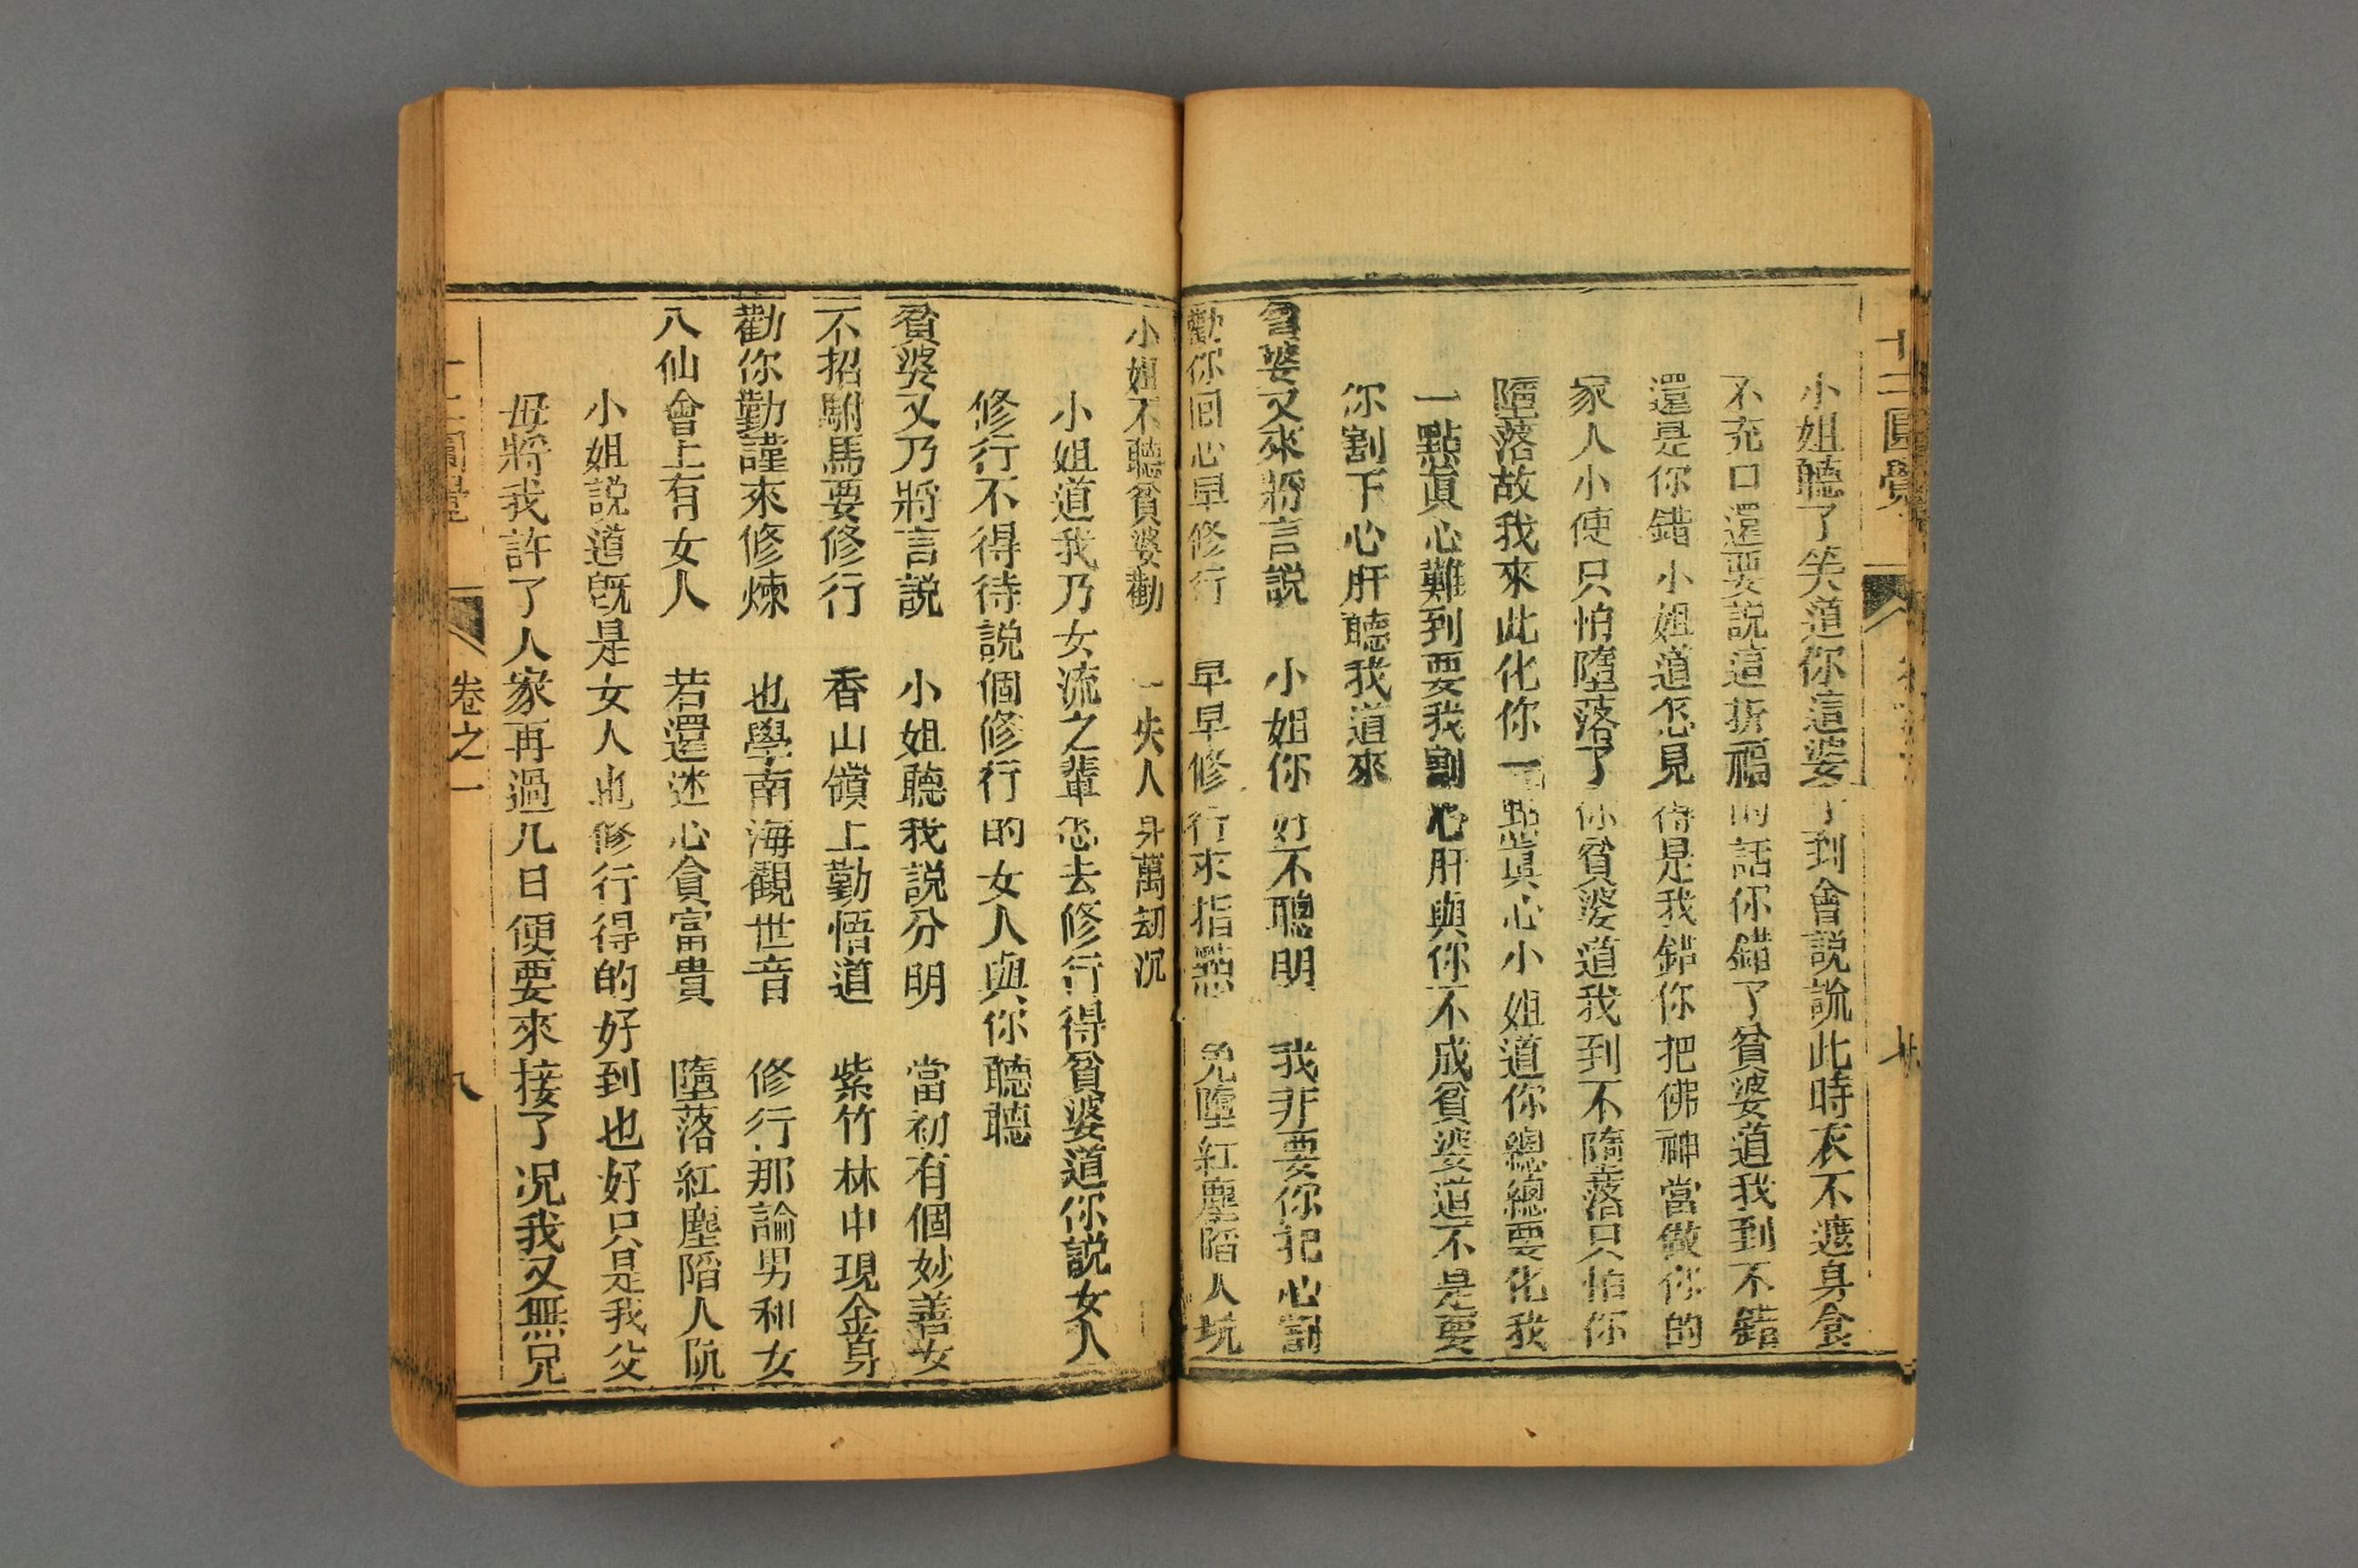 十二圓覺
小姐聽了笑道你這婆子到會説説此時衣不遮身食
不充口還要説這折福的話你錯了貧婆道我到不錯
還是你錯小姐道怎見得是我錯你把佛神當做你的
家人小使只怕墮落了你貧婆道我到不墮落只怕你
墮落故我來此化你一點眞心小姐道你總總要化我
一點眞心難到要我割心肝與你不成貧婆道不是要
你割下心肝聽我道來
貧婆又來將言説　小姐你好不聰明　我非要你把心割
勸你回心早修行　早早修行求指點　免墮紅塵陷人坑
小姐不聽貧婆勸　一失人身萬刼沉
小姐道我乃女流之輩怎去修行得貧婆道你説女人
修行不得待説個修行的女人與你聽聽
貧婆又乃將言説　小姐聽我説分明　當初有個妙善女
不招駙馬要修行　香山嶺上勤悟道　紫竹林中現金身
勸你勤謹來修煉　也學南海觀世音　修行那論男和女
八仙會上有女人　若還迷心貪富貴　墮落紅塵陷人阬
小姐説道旣是女人也修行得的好到也好只是我父
母將我許了人家再過几日便要來接了况我又無兄
十二圓覺　卷之一　八